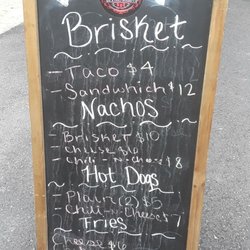 Brisket
- Taco $4
- Sandwhich $12
Nachos
- Brisket $10
- Cheese $6
- Chili-N-Cheese $8
Hot Dogs
- Plain (2) $5
- Chili-N-Cheese $7
Fries
Cheese $6